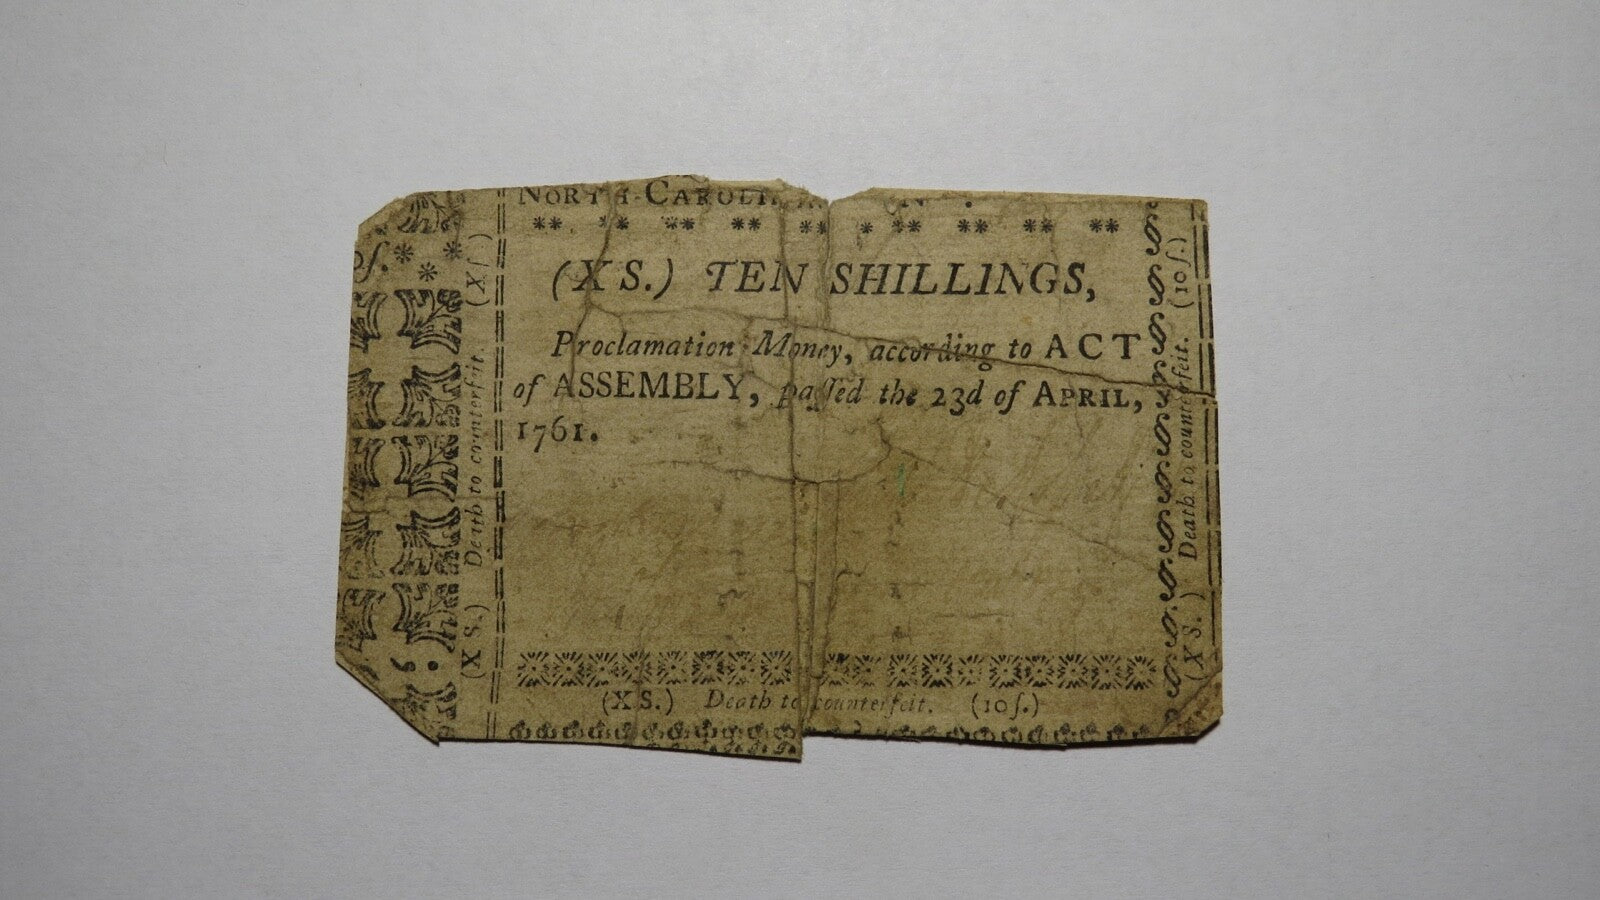 NORTH-CAROLINA
** ** ** ** ** * ** ** ** **
(X S.) TEN SHILLINGS,
Proclamation Money, according to ACT
of ASSEMBLY, paſſed the 23d of APRIL,
1761.
(X S.) Death to counterfeit. (10ſ.)
ſ. * * *
(X S.) Death to counterfeit. (Xſ)
(X S.) Death to counterfeit. (10ſ.)